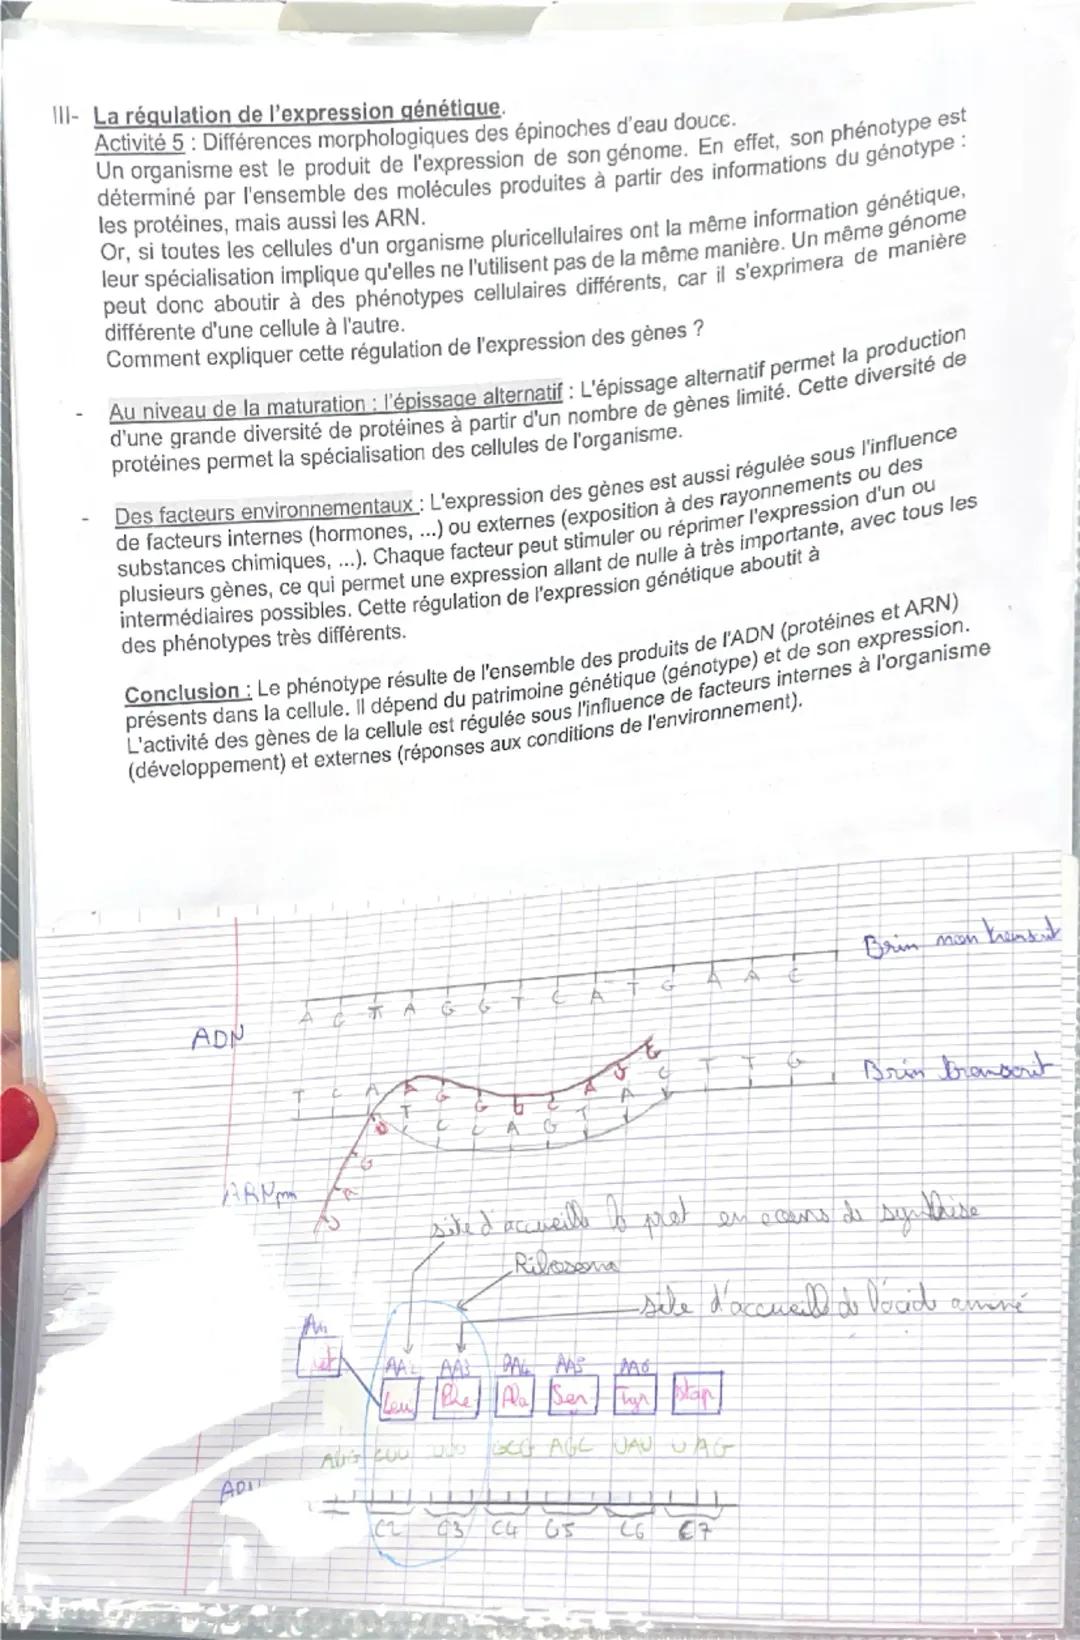 III- La régulation de l'expression génétique.
Activité 5 : Différences morphologiques des épinoches d'eau douce.
Un organisme est le produit de l'expression de son génome. En effet, son phénotype est
déterminé par l'ensemble des molécules produites à partir des informations du génotype :
les protéines, mais aussi les ARN.
Or, si toutes les cellules d'un organisme pluricellulaires ont la même information génétique,
leur spécialisation implique qu'elles ne l'utilisent pas de la même manière. Un même génome
peut donc aboutir à des phénotypes cellulaires différents, car il s'exprimera de manière
différente d'une cellule à l'autre.
Comment expliquer cette régulation de l'expression des gènes ?
- Au niveau de la maturation : l'épissage alternatif : L'épissage alternatif permet la production
d'une grande diversité de protéines à partir d'un nombre de gènes limité. Cette diversité de
protéines permet la spécialisation des cellules de l'organisme.
- Des facteurs environnementaux : L'expression des gènes est aussi régulée sous l'influence
de facteurs internes (hormones, ...) ou externes (exposition à des rayonnements ou des
substances chimiques, ...). Chaque facteur peut stimuler ou réprimer l'expression d'un ou
plusieurs gènes, ce qui permet une expression allant de nulle à très importante, avec tous les
intermédiaires possibles. Cette régulation de l'expression génétique aboutit à
des phénotypes très différents.
Conclusion : Le phénotype résulte de l'ensemble des produits de l'ADN (protéines et ARN)
présents dans la cellule. Il dépend du patrimoine génétique (génotype) et de son expression.
L'activité des gènes de la cellule est régulée sous l'influence de facteurs internes à l'organisme
(développement) et externes (réponses aux conditions de l'environnement).
Brin non transcrit
A C T A G G T C A T G A A C
ADN
T C A T C C A G T A C T T G
Brin transcrit
A G G U C A U G
ARNpm
site d'accueille la prot en cours de synthèse
Ribosome
site d'accueille de l'acide aminé
AA2 AA3 AA4 AA5 AA6
Leu Phe Ala Ser Tyr stop
AUG CUU UUU GCG AGC UAU UAG
C2 C3 C4 C5 C6 C7